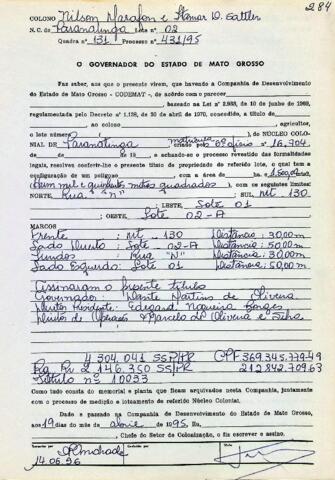 284
COLONO Nilson Marafon e Itamar D. Sattler
N. C. de Paranatinga Lote nº 02
Quadra nº 131 Processo nº 431/95
O GOVERNADOR DO ESTADO DE MATO GROSSO
Faz saber, aos que o presente virem, que havendo a Companhia de Desenvolvimento
do Estado de Mato Grosso - CODEMAT -, de acôrdo com o parecer
baseado na Lei nº 2.933, de 10 de junho de 1969,
regulamentada pelo Decreto nº 1.138, de 30 de abril de 1970, concedido, a título de
ao colono agricultor,
o lote número ( ) do NÚCLEO COLO-
NIAL DE Paranatinga matrícula criado pelo 6º ofício nº 16.904,
de de de 19 e achando-se o processo revestido das formalidades
legais, resolveu conferir-lhe o presente título de propriedade do referido lote, o qual tem a
configuração de um polígono com a área de ha 1.500,00
(Hum mil e quinhentos metros quadrados) com os seguintes limites:
NORTE, Rua "N" SUL MT - 130
LESTE, Lote 01
OESTE, Lote 02-A
MARCOS
Frente : MT - 130 Distância: 30,00m
Lado Direito: Lote 02-A Distância: 50,00m
Fundos : Rua "N" Distância: 30,00m
Lado Esquerdo: Lote 01 Distância: 50,00m
Assinaram o presente título
Governador: Dante Martins de Oliveira
Diretor Presidente: Edegard Nogueira Borges
Diretor de Operação: Marcelo de Oliveira e Silva
4.304.041 SSP/PR CPF 369.345.779-49
Rg Nº 2.146.350 SSP/PR 212.842.709.63
Título nº 10033
Como tudo consta do memorial e planta que ficam arquivados nesta Companhia, juntamente
com o processo de medição e loteamento do referido Núcleo Colonial.
Dado e passado na Companhia de Desenvolvimento do Estado de Mato Grosso,
aos 19 dias do mês de abril de 1995 Eu,
, Chefe do Setor de Colonização, o fiz escrever e assino.
14.06.96